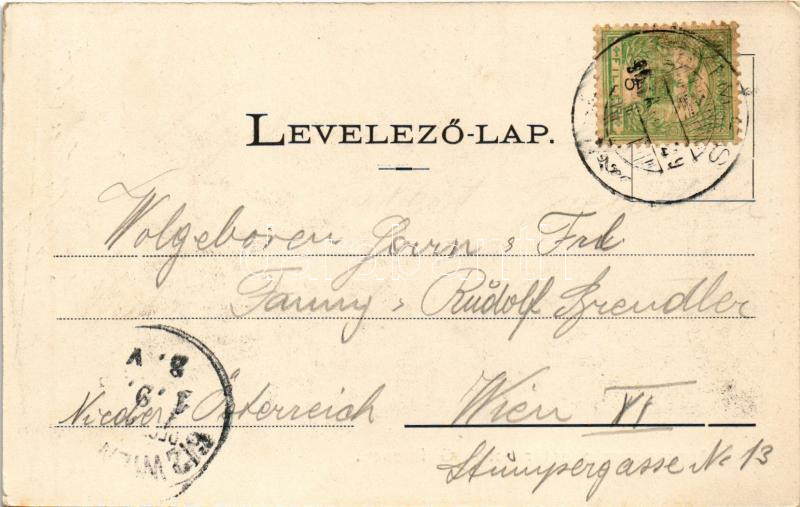 LEVELEZŐ-LAP.
Wolgeboren Herrn & Frl
Fanny & Rudolf Brendler
Nieder Österreich Wien VI
Stumpergasse No 13
WIEN
8. V
darabanth